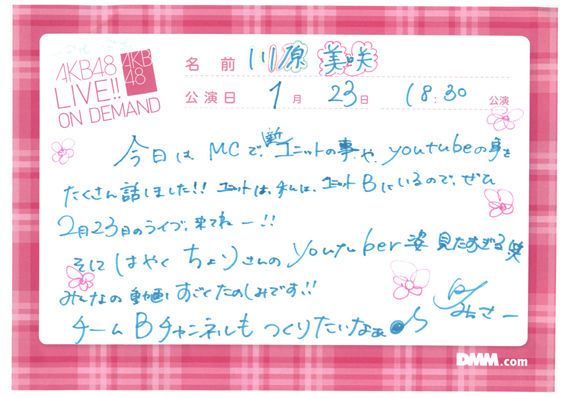 AKB48
LIVE!!
ON DEMAND
AKB
48
名前 川原 美咲
公演日 1月 23日 18:30 公演
今日は MCで、新ユニットの事や、youtubeの事を
たくさん話しました!! ユニットは、チームに、ユニット Bにいるので、ぜひ
2月23日のライブ、来てねー!!
そして はやく ちょりさんの youtuber 姿 見たすぎる 笑
みんなの 動画も すごく たのしみです!!
チーム Bチャンネルも つくりたいなぁ
By みさー
DMM.com